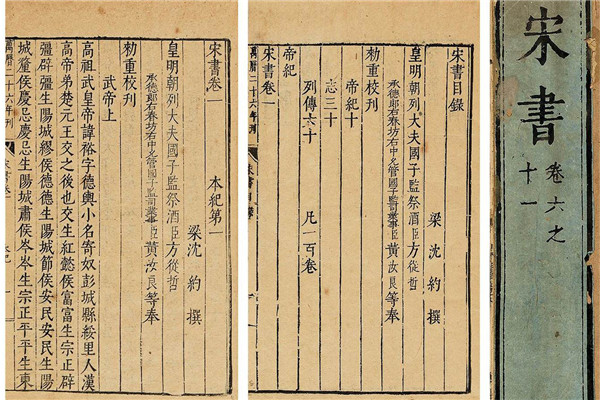 宋書
卷六之
十一
宋書目錄
梁沈約撰
皇明朝列大夫國子監祭酒臣方從哲
承德郎右春坊右中允管國子監司業事臣黃汝良等奉
勅重校刊
帝紀十
志三十
列傳六十 凡一百卷
帝紀
宋書卷一
萬曆二十六年刊 宋書目錄
宋書卷一 本紀第一
梁沈約撰
皇明朝列大夫國子監祭酒臣方從哲
承德郎右春坊右中允管國子監司業事臣黃汝良等奉
勅重校刊
武帝上
高祖武皇帝諱裕字德輿小名寄奴彭城縣綏里人漢
高帝弟楚元王交之後也交生紅懿侯富富生宗正辟
彊辟彊生陽城繆侯德德生陽城節侯安民安民生陽
城釐侯慶忌慶忌生陽城肅侯岑岑生宗正平平生東
萬曆二十六年刊 宋書卷一